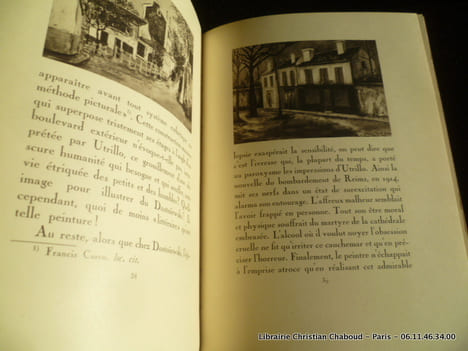 apparaître avant tout système
méthode picturale¹). Cette construction
qui superpose tristement ses étages à l'angle
boulevard extérieur n'évoque-t-elle pas,
prêtée par Utrillo, ce grouillement
scure humanité qui besogne et qui
vie étriquée des petits et des humbles? Quelle
image pour illustrer du Dostoïewski!
cependant, quoi de moins « littéraire »
telle peinture!
Au reste, alors que chez Dostoïewski,
¹) Francis Carco, loc. cit.
lepsie exaspérait la sensibilité, on peut dire que
c'est l'ivresse qui, la plupart du temps, a porté
au paroxysme les impressions d'Utrillo. Ainsi la
nouvelle du bombardement de Reims, en 1914,
mit ses nerfs dans un état de surexcitation qui
alarma son entourage. L'affreux malheur semblait
l'avoir frappé en personne. Tout son être moral
et physique souffrait du martyre de la cathédrale
embrasée. L'alcool où il voulut noyer l'obsession
cruelle ne fit qu'irriter ce cauchemar et qu'en pré-
ciser l'horreur. Finalement, le peintre n'échappait
à l'emprise atroce qu'en réalisant cet admirable
Librairie Christian Chaboud - Paris - 06.11.46.34.00